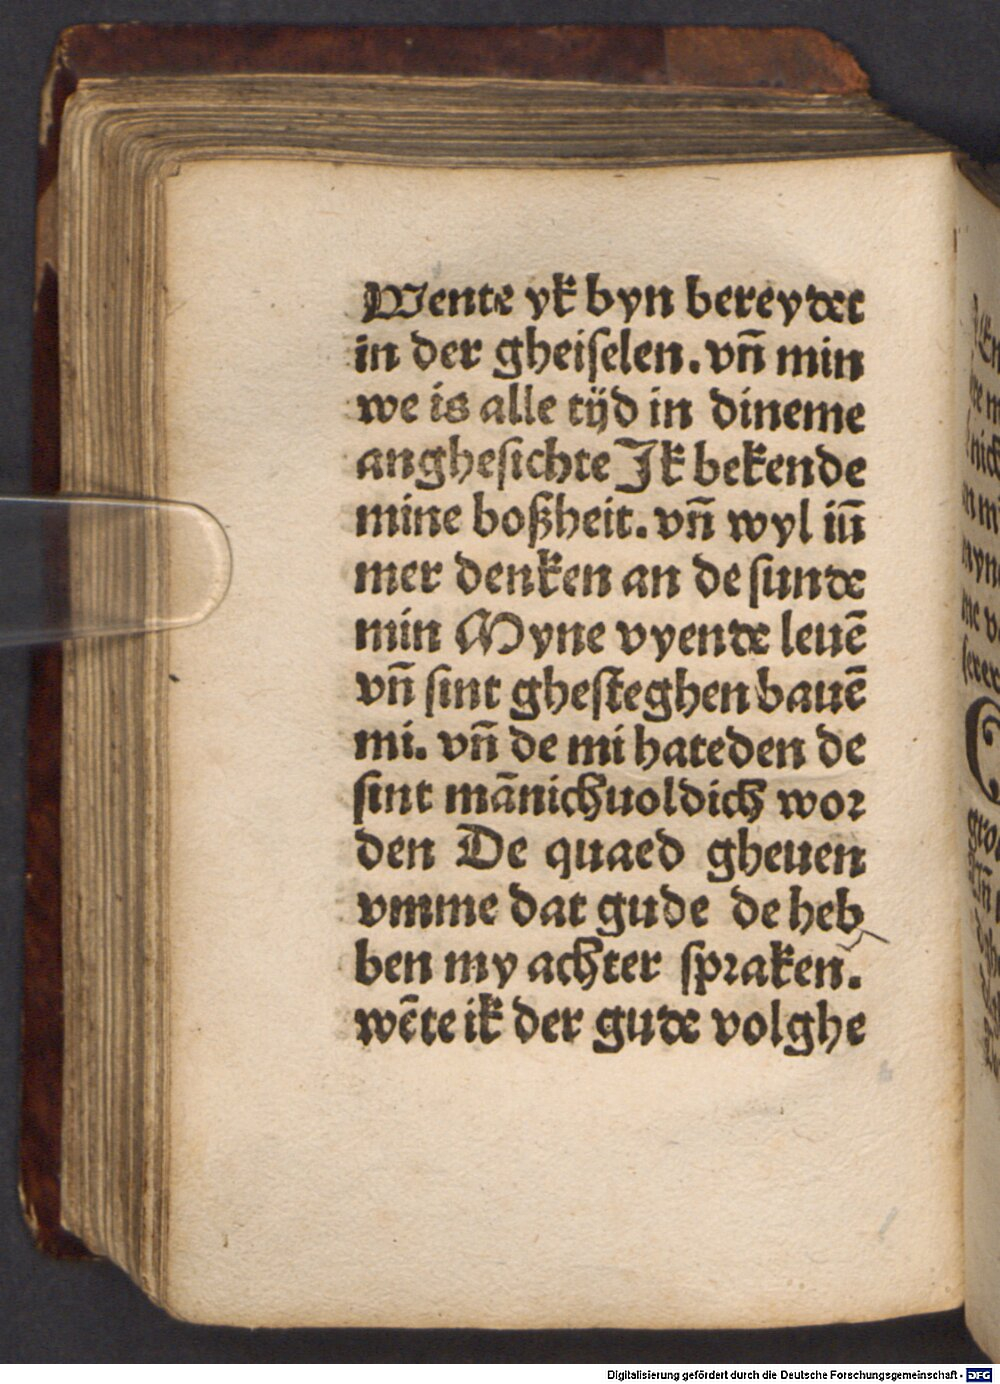 Wente yk byn bereydet
in der gheiselen. vn̄ min
we is alle tijd in dineme
anghesichte Ik bekende
mine boßheit. vn̄ wyl iū
mer denken an de sunde
min Myne vyende leuē
vn̄ sint ghesteghen bauē
mi. vn̄ de mi hateden de
sint mānichuoldich wor
den De quaed gheuen
vmme dat gude de heb
ben my achter spraken.
wēte ik der gude volghe
Digitalisierung gefördert durch die Deutsche Forschungsgemeinschaft - DFG